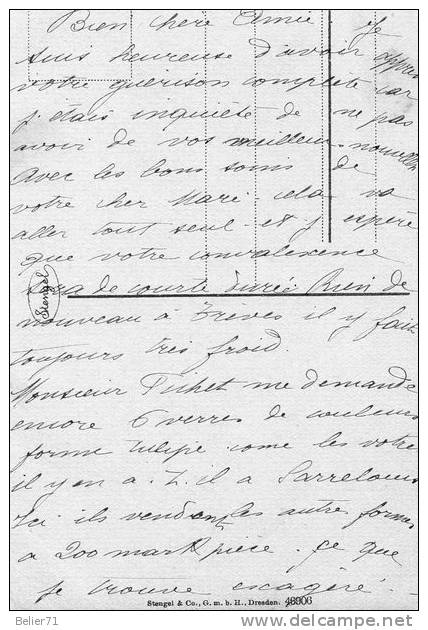 Bien chère Amie. Je
suis heureuse d'avoir appris
votre guérison complete car
j'étais inquiète de ne pas
avoir de vos meilleur. nouvelles
Avec les bons soins de
votre cher Mari cela va
aller tout seul et j espère
que votre convalescence
sera de courte durée. Rien de
nouveau à Trèves il y fait
toujours très froid.
Monsieur Pichet me demande
encore 6 verres de couleurs
forme tulipe come les votre
il y en a . t. il a Sarrelouis
Ici ils vendent les autre formes
a 200 mark pièce. Ce que
je trouve exagéré.
Stengel
Stengel & Co., G. m. b. H., Dresden. 46906
Belier71
www.delcampe.net